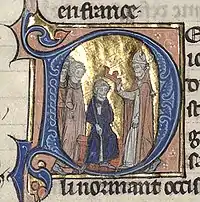 en france.
li normant occis